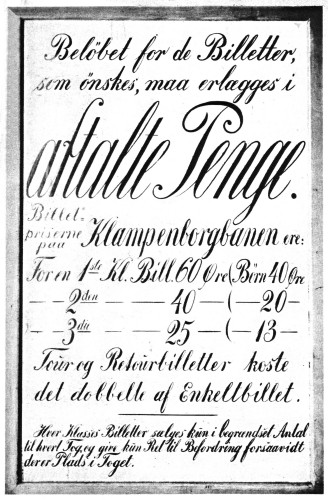 Beløbet for de Billetter,
som ønskes, maa erlægges i
aftalte Penge.
Billet-
priserne
paa Klampenborgbanen ere:
For en 1ste Kl. Bill. 60 Øre (Børn 40 Øre
— — 2den — — — 40 — (— 20 —
— — 3die — — — 25 — (— 13 —
Tour og Retourbilletter koste
det dobbelte af Enkeltbillet.
Hver Klasses Billetter sælges kun i begrændset Antal
til hvert Tog, og give kun Ret til Befordring forsaavidt
derer Plads i Toget.